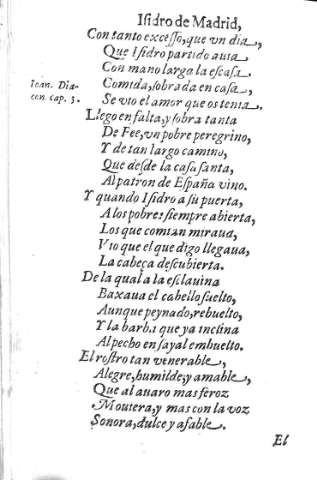 Isidro de Madrid,
Con tanto excesso, que vn dia,
Que Isidro partido auia
Con mano larga la escasa
Comida, sobrada en casa,
Ioan. Dia-
con. cap. 3.
Se vio el amor que ostenta.
Llego en falta, y sobra tanta
De Fee, vn pobre peregrino,
Y de tan largo camino,
Que desde la casa santa,
Al patron de España vino.
Y quando Isidro a su puerta,
A los pobres siempre abierta,
Los que comian miraua,
Vio que el que digo llegaua,
La cabeça descubierta.
De la qual a la esclauina
Baxaua el cabello suelto,
Aunque peynado, rebuelto,
Y la barba que ya inclina
Al pecho en sayal embuelto.
El rostro tan venerable,
Alegre, humilde, y amable,
Que al auaro mas feroz
Mouiera, y mas con la voz
Sonora, dulce y afable.
El